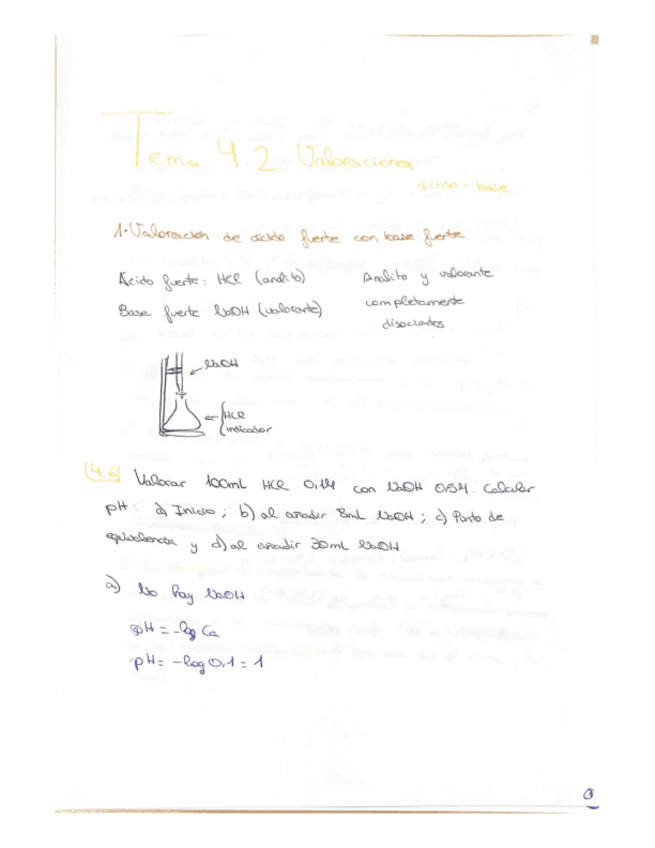 Tema 4.2. Valoraciones
ácido - base
1. Valoración de ácido fuerte con base fuerte
Ácido fuerte: HCl (analito)
Base fuerte NaOH (valorante)
Analito y valorante
completamente
disociados
NaOH
HCl
indicador
4.6 Valorar 100mL HCl 0,1M con NaOH 0,5M. Calcular
pH: a) Inicio; b) al añadir 8mL NaOH; c) Punto de
equivalencia y d) al añadir 30mL NaOH
a) No hay NaOH
pH = -log Ca
pH = -log 0,1 = 1